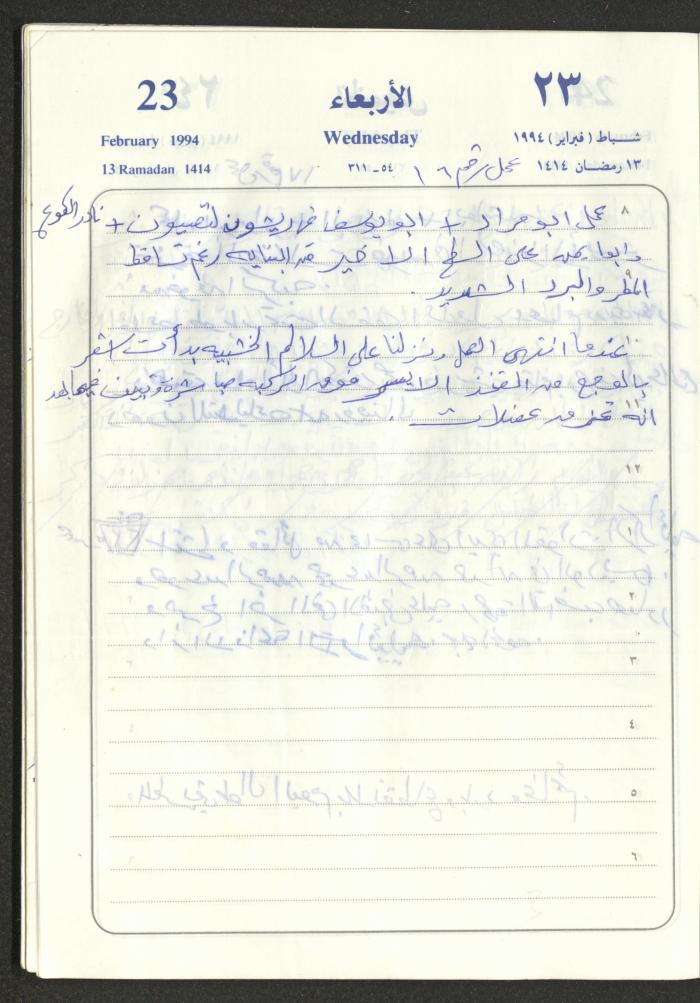 23 الأربعاء ٢٣
February 1994 Wednesday شباط (فبراير) ١٩٩٤
13 Ramadan 1414 ٥٤-٣١١ ١٣ رمضان ١٤١٤
عمل رقم ١٦
٨
عمل ابو مراد + ابو يوسف في ريشون لتصيون + نادر الكوع
وابو على السطح الاخير من البنايه رغم تساقط
٩
المطر والبرد الشديد.
عندما انتهى العمل ونزلنا على السلالم الخشبيه بدأت اشعر
بالوجع من الفخذ الايسر فوق الركبه مباشرة وتبين فيما بعد
١١
انه تمزق عضلات.
١٢
١
٢
٣
٤
٥
٦